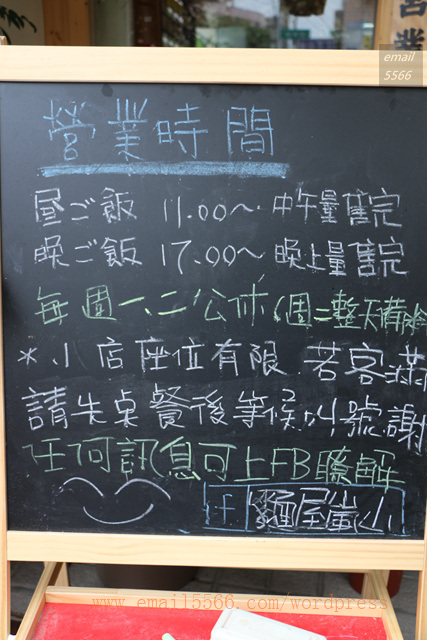 email
5566
營業時間
昼ご飯 11.00~ 中午量售完
晚ご飯 17.00~ 晚上量售完
每週一、二公休(週二整天備
*小店座位有限 若客滿
請先桌餐後等候叫號謝
任何訊息可上FB瞭解
f 麵屋嵐小
www.email5566.com/wordpress